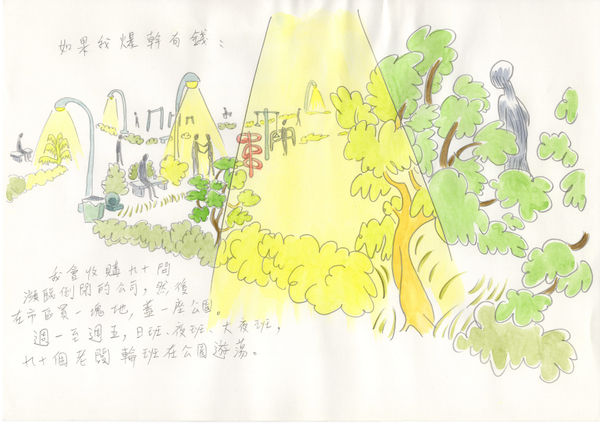 如果我爆幹有錢：
我會收購九十間
瀕臨倒閉的公司，然後
在市區買一塊地，蓋一座公園。
週一至週五，日班、夜班、大夜班，
九十個老闆輪班在公園遊蕩。